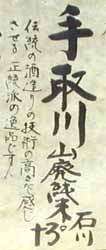 手取川山廃純米 石川
＋3°
伝統の酒造りの技術の高さを感じ
させる正統派の逸品です。